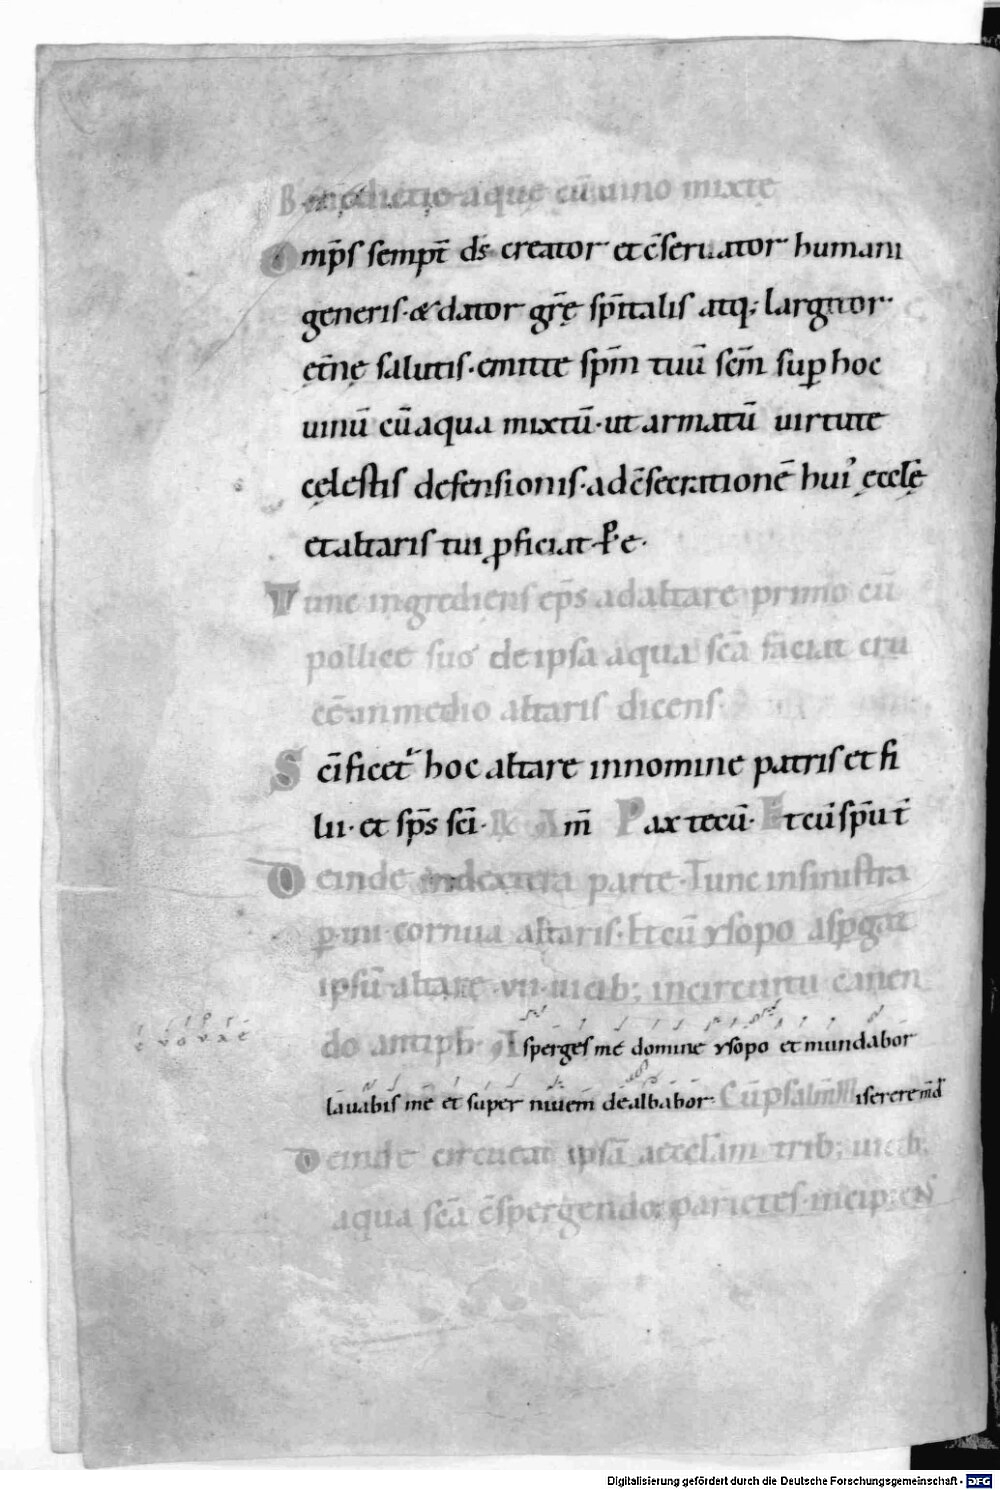 Benedictio aque cū uino mixtę
Omp̄s sempt̄ ds̄ creator et c̄seruator humani
generis· & dator gr̄ę sp̄italis atq; largitor·
et̄nę salutis· emitte sp̄m tuū sc̄m sup̱ hoc
uinū cū aqua mixtū· ut armatū uirtute
cęlestis defensionis· ad c̄secrationē hui᾽ ęccl̄ę
et altaris tui ꝓficiat· P̱ e·
Tunc ingrediens ep̄s ad altare primo cū
pollice suo de ipsa aqua sc̄a faciat cru
cē in medio altaris dicens·
Sc̄ificet᷑ hoc altare in nomine patris et fi
lii· et sp̄s sc̄i· R̷ Am̄ Pax tecū· Et cū sp̄u t̄
Deinde in dextera parte· Tunc in sinistra
ꝑ iiii cornua altaris· Et cū ysopo asꝑgat
ipsū altare ·vii· uicib; in circuitu canen
do antiph· Asperges me domine ysopo et mundabor
euouae
lauabis me et super niuem dealbabor· Cū psalm̄ Miserere m̄ d̄s
Deinde circueat ipsā aecclam trib; uicib;
aqua sc̄a c̄spergendo parietes· incipiens
Digitalisierung gefördert durch die Deutsche Forschungsgemeinschaft - DFG